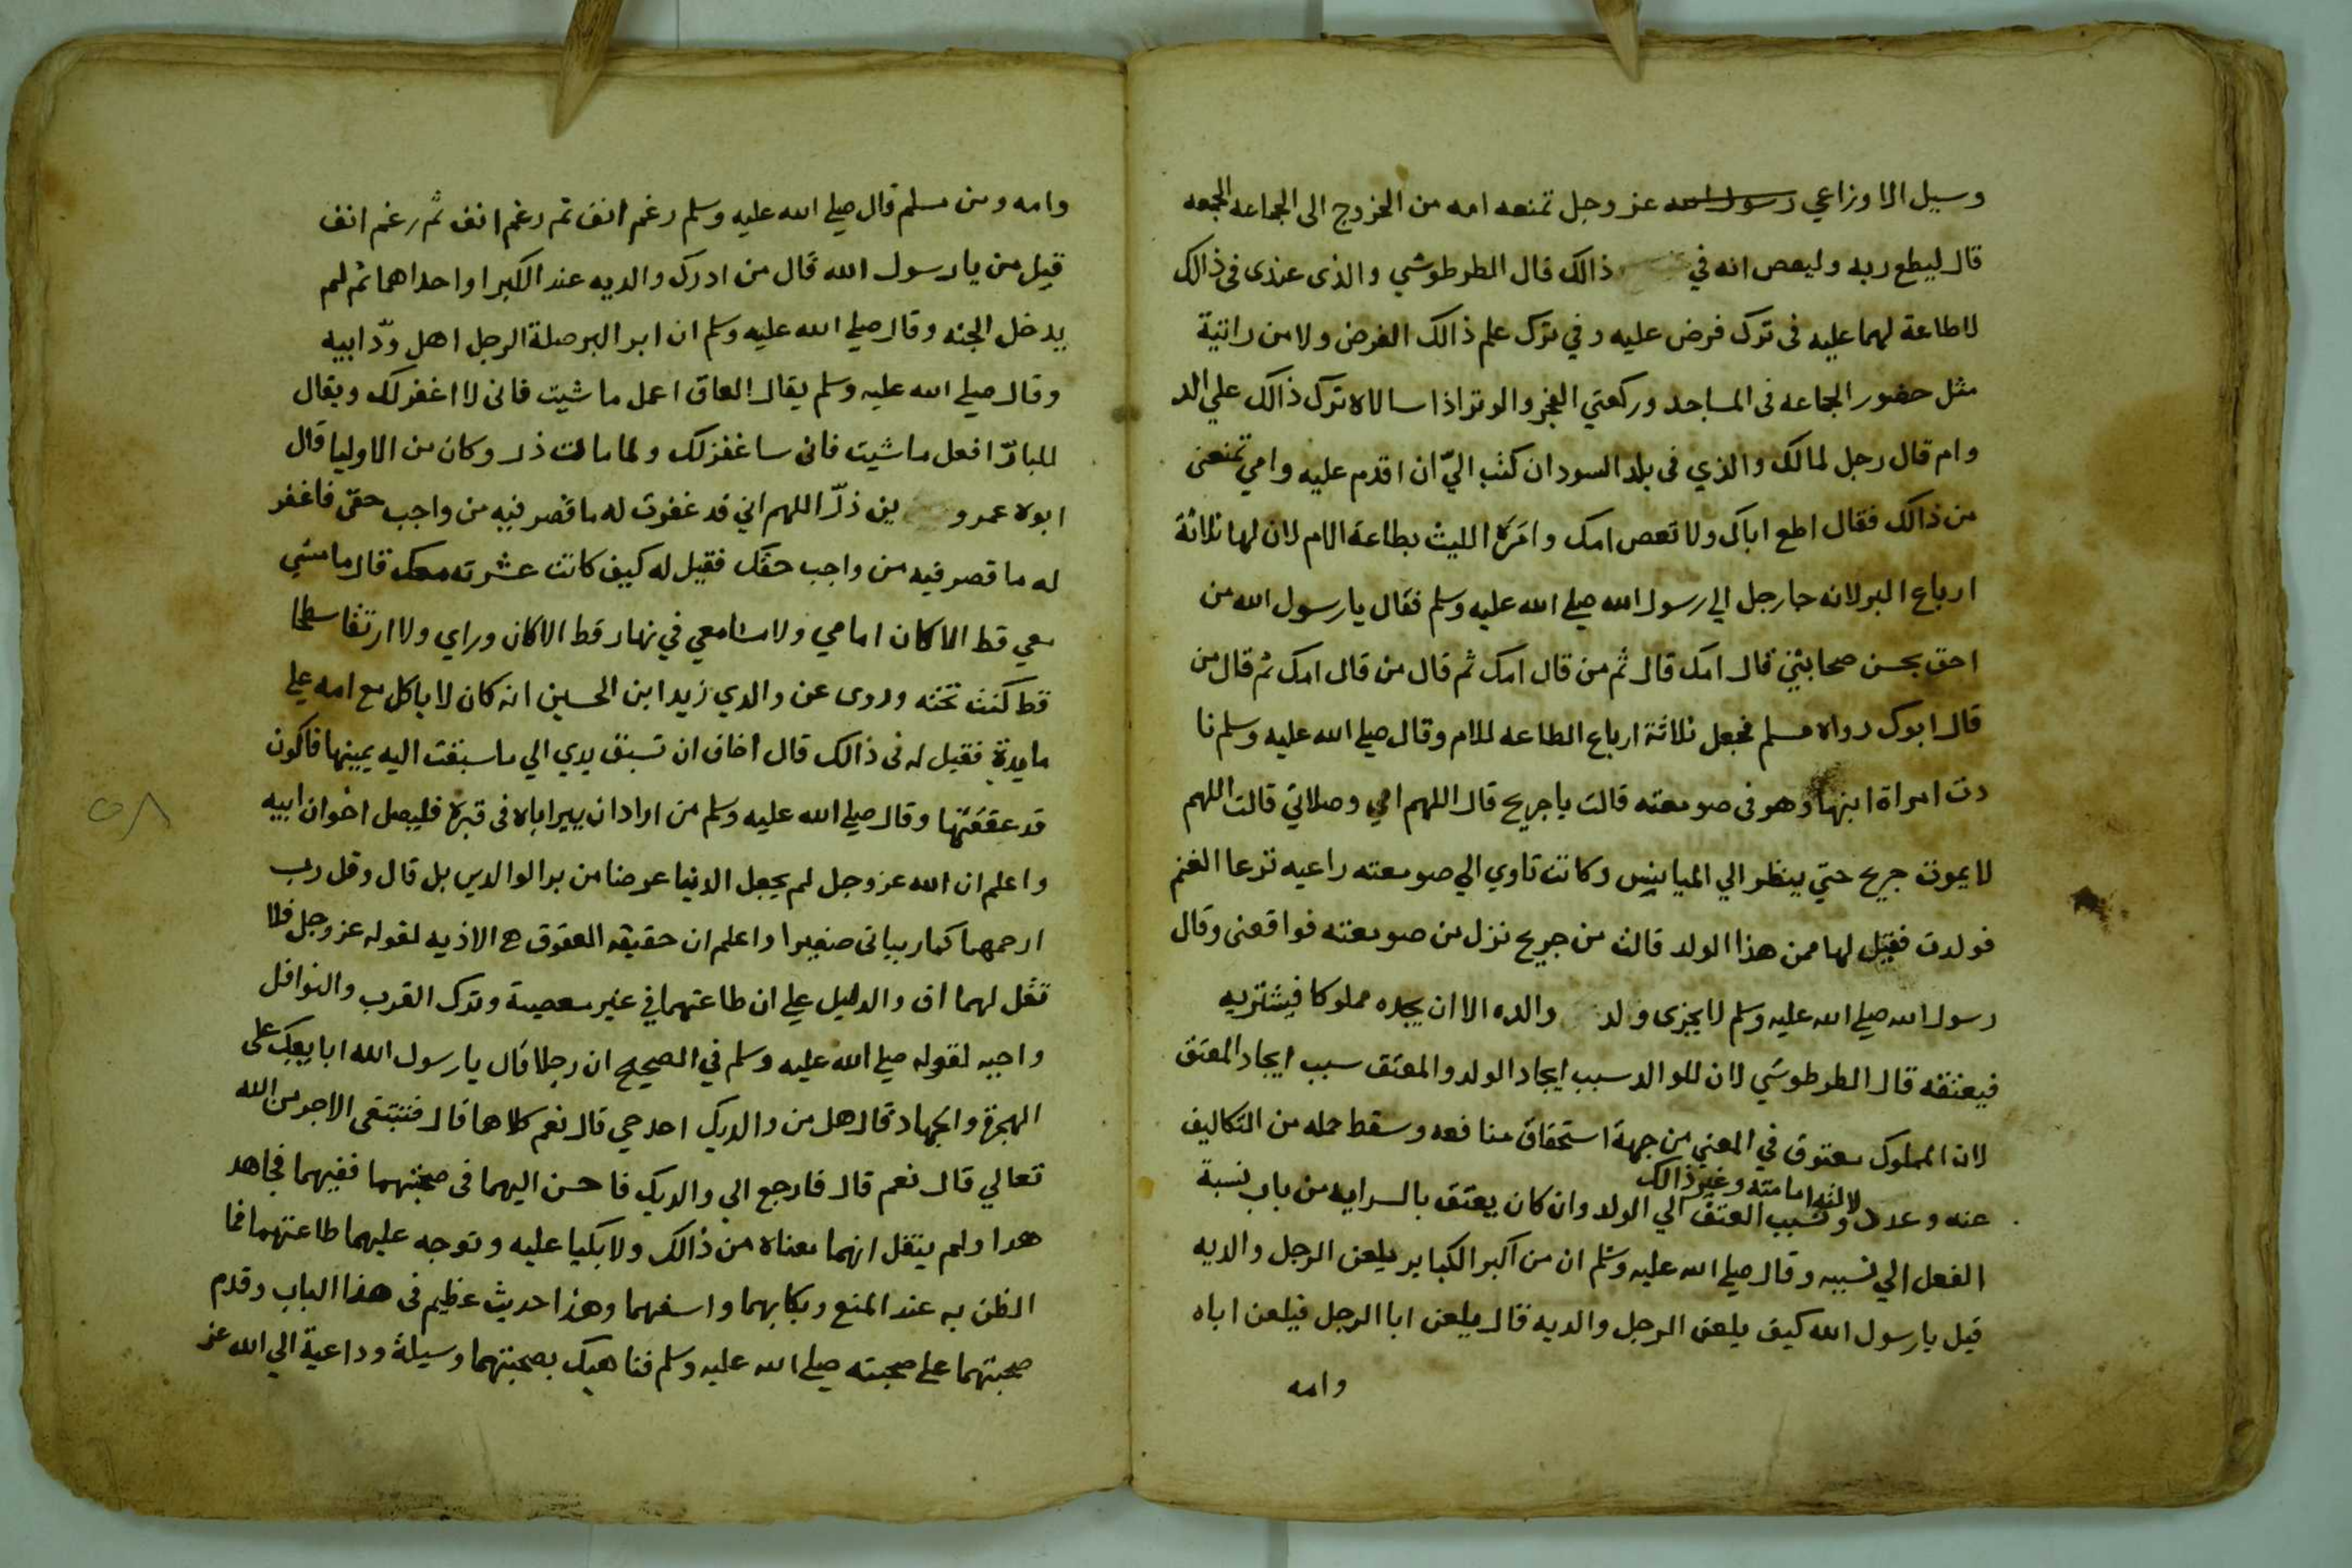 وسيل الاوزاعي رسول الله عز وجل تمنعه امه من الخروج الى الجماعه الجمعه
قال ليطع ربه وليعص انه في ذالك قال الطرطوشي والذى عندى فى ذالك
لاطاعة لهما عليه فى ترك فرض عليه وفي ترك علم ذالك الفرض ولا من راتبة
مثل حضور الجماعه فى المساجد وركعتي الفجر والوتر اذا سالاه ترك ذالك علي الد
وام قال رجل لمالك والذي فى بلد السودان كتب اليّ ان اقدم عليه وامي تمنعنى
من ذالك فقال اطع اباك ولا تعص امك وامَرَه الليث بطاعة الام لان لها ثلاثة
ارباع البر لانه جا رجل الي رسول الله صلي الله عليه وسلم فقال يا رسول الله من
احق بحسن صحابتي قال امك قال ثم من قال امك ثم قال من قال امك ثم قال من
قال ابوك رواه مسلم فجعل ثلاثة ارباع الطاعه للام وقال صلي الله عليه وسلم نا
دت امراة ابنها وهو فى صومعته قالت يا جريح قال اللهم امي وصلاتي قالت اللهم
لا يموت جريح حتي ينظر الي المياميس وكانت تاوي الي صومعته راعيه ترعا الغنم
فولدت فقيل لها ممن هذا الولد قالت من جريح نزل من صومعته فواقعنى وقال
رسول الله صلي الله عليه وسلم لا يجزى ولد والده الا ان يجده مملوكا فيشتريه
فيعتقه قال الطرطوشي لان للوالد سبب ايجاد الولد والمعتق سبب ايجاد المعتق
لان المملوك معتوق في المعني من جهة استحقاق منافعه وسقط حمله من التكاليف
امامته وغير ذالك
عنه وعد ونسب العتق الي الولد وان كان يعتق بالسرايه من باب نسبة
الفعل الي نسيبه وقال صلي الله عليه وسلم ان من اكبر الكباير يلعن الرجل والديه
قيل يا رسول الله كيف يلعن الرجل والديه قال يلعن ابا الرجل فيلعن اباه
وامه
وامه ومن مسلم قال صلي الله عليه وسلم رغم انف ثم رغم انف ثم رغم انف
قيل من يا رسول الله قال من ادرك والديه عند الكبر او احداهما ثم لم
يدخل الجنه وقال صلي الله عليه وسلم ان ابر البر صلة الرجل اهل ودّ ابيه
وقال صلي الله عليه وسلم يقال العاق اعمل ما شيت فانى لا اغفر لك ويقال
للبارّ افعل ما شيت فانى ساغفر لك ولما مات ذر وكان من الاوليا قال
ابوه عمرو بن ذرّ اللهم اني قد غفرت له ما قصر فيه من واجب حقى فاغفر
له ما قصر فيه من واجب حقك فقيل له كيف كانت عشرته معك قال ما مشي
معي قط الا كان امامي ولا مشا معي في نهار قط الا كان وراي ولا ارتقا سطحا
قط كنت تحته وروى عن والدي زيد ابن الحسين انه كان لا ياكل مع امه علي
مايدة فقيل له فى ذالك قال اخاف ان تسبق يدي الي ما سبقت اليه يمينها فاكون
قد عققتها وقال صلي الله عليه وسلم من اراد ان يبر اباه فى قبره فليصل اخوان ابيه
واعلم ان الله عز وجل لم يجعل الدنيا عوضا من بر الوالدين بل قال وقل رب
ارحمهما كما ربيانى صغيرا واعلم ان حقيقه العقوق هي الاذيه لقوله عز وجل فلا
تقل لهما اف والدليل علي ان طاعتهما في غير معصية وترك القرب والنوافل
واجبه لقوله صلي الله عليه وسلم في الصحيح ان رجلا قال يا رسول الله ابايعك على
الهجرة والجهاد قال هل من والديك احد حي قال نعم كلاهما قال فتبتغى الاجر من الله
تعالي قال نعم قال فارجع الي والديك فاحسن اليهما فى صحبتهما ففيهما فجاهد
هدا ولم ينقل انهما معناه من ذالك ولا بكيا عليه وتوجه عليهما طاعتهما فما
الظن به عند المنع وبكايهما واسفهما وهذا حديث عظيم فى هذا الباب وقدم
صحبتهما على صحبته صلي الله عليه وسلم فناهيك بصحبتهما وسيلة وداعية الي الله عز
٥٨